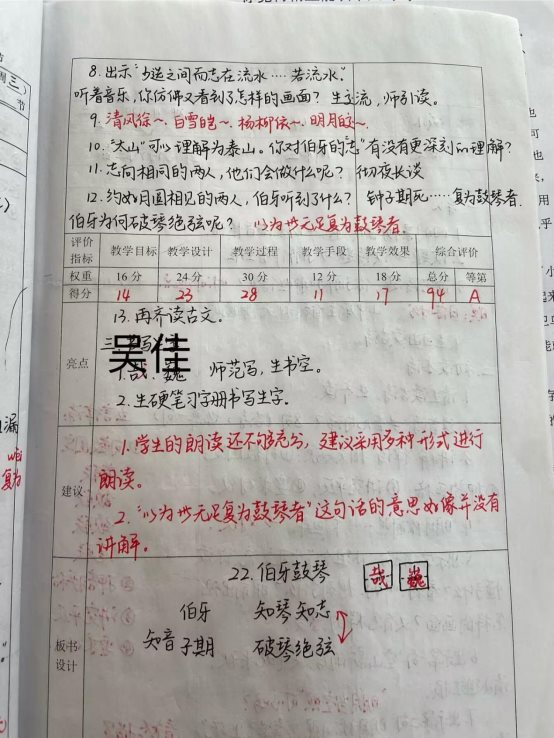 8. 出示"少选之间而志在流水….若流水"。
听着音乐,你仿佛又看到了怎样的画面? 生交流,师引读。
9. 清风徐~. 白雪皑~. 杨柳依~. 明月皎~.
10. "太山"可以理解为泰山。你对伯牙的"志"有没有更深刻的理解?
11. 志向相同的两人,他们会做什么呢? 彻夜长谈
12. 约好月圆相见的两人,伯牙听到了什么? 钟子期死….复为鼓琴者.
伯牙为何破琴绝弦呢? 以为世无足复为鼓琴者.
评价指标 教学目标 教学设计 教学过程 教学手段 教学效果 综合评价
权重 16分 24分 30分 12分 18分 总分 等第
得分 14 23 28 11 17 94 A
13. 再齐读古文。
三
吴佳
亮点 1. 哉. 巍 师范写,生书空。
2. 生硬笔习字册书写生字。
1. 学生的朗读还不够充分,建议采用多种形式进行
建议 朗读。
2. "以为世无足复为鼓琴者"这句话的意思好像并没有
讲解。
22. 伯牙鼓琴 哉 巍
伯牙 知琴知志
知音 子期 破琴绝弦
板书设计